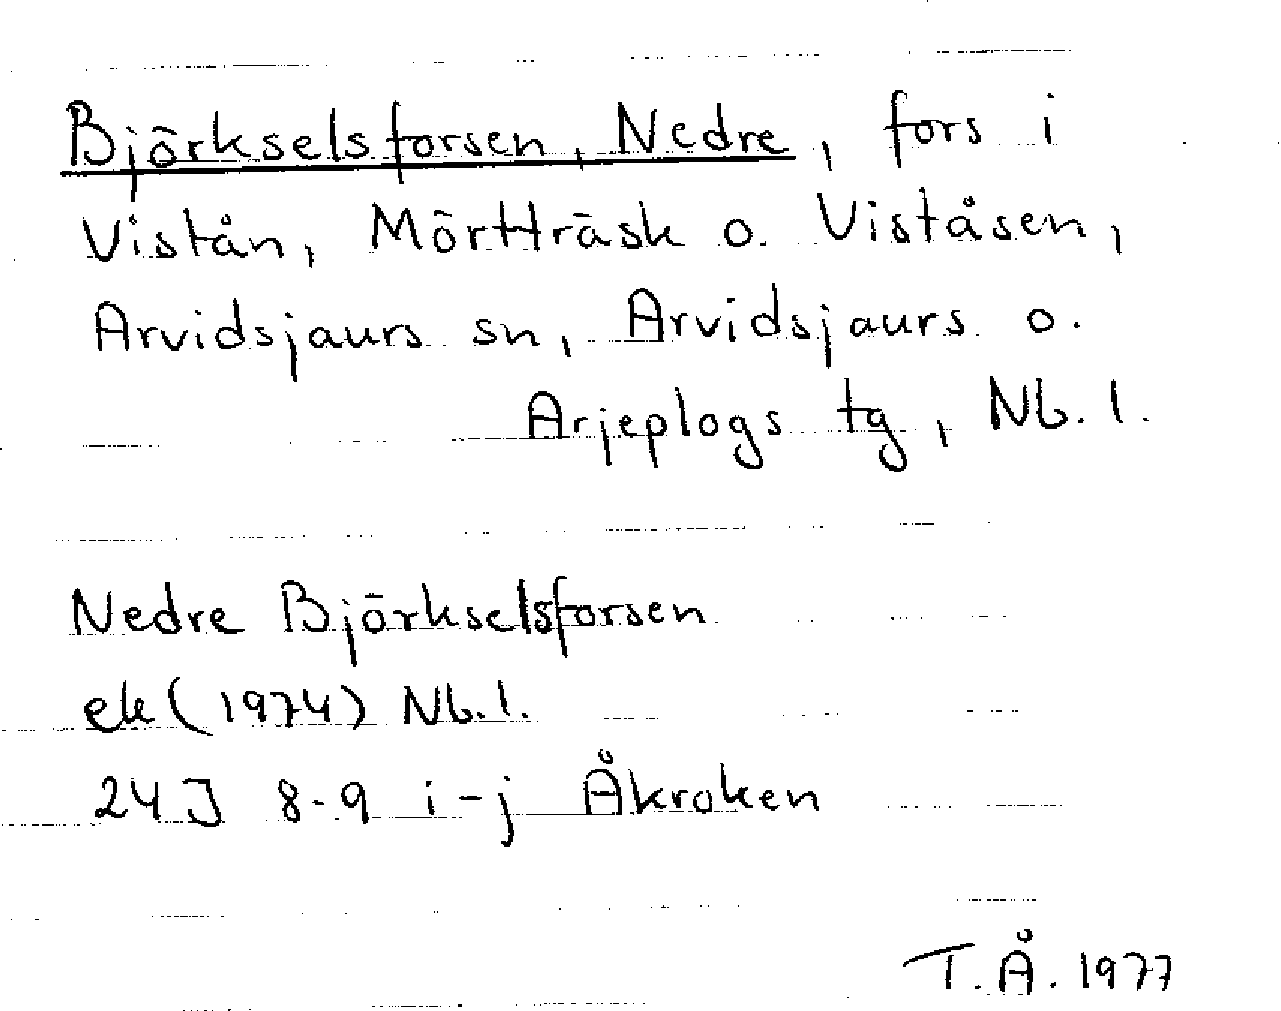 Björkselsforsen, Nedre, fors i
Vistån, Mörtträsk o. Viståsen,
Arvidsjaurs sn, Arvidsjaurs o.
Arjeplogs tg, Nb. l.
Nedre Björkselsforsen
ek (1974) Nb. l.
24J 8-9 i-j Åkroken
T.Å. 1977